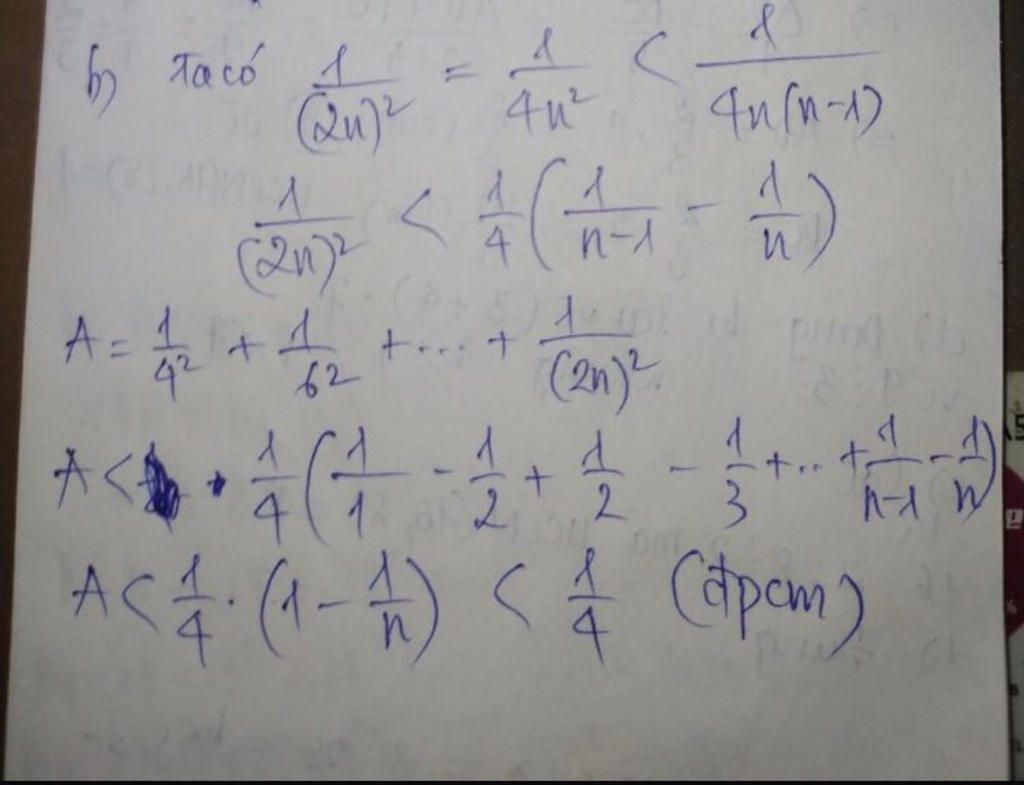 b) Ta có 1/(2n)² = 1/4n² < 1/4n(n-1)
1/(2n)² < 1/4 (1/n-1 - 1/n)
A = 1/4² + 1/6² + ... + 1/(2n)².
A < 1/4 (1/1 - 1/2 + 1/2 - 1/3 + .. + 1/n-1 - 1/n)
A < 1/4 . (1 - 1/n) < 1/4 (đpcm)